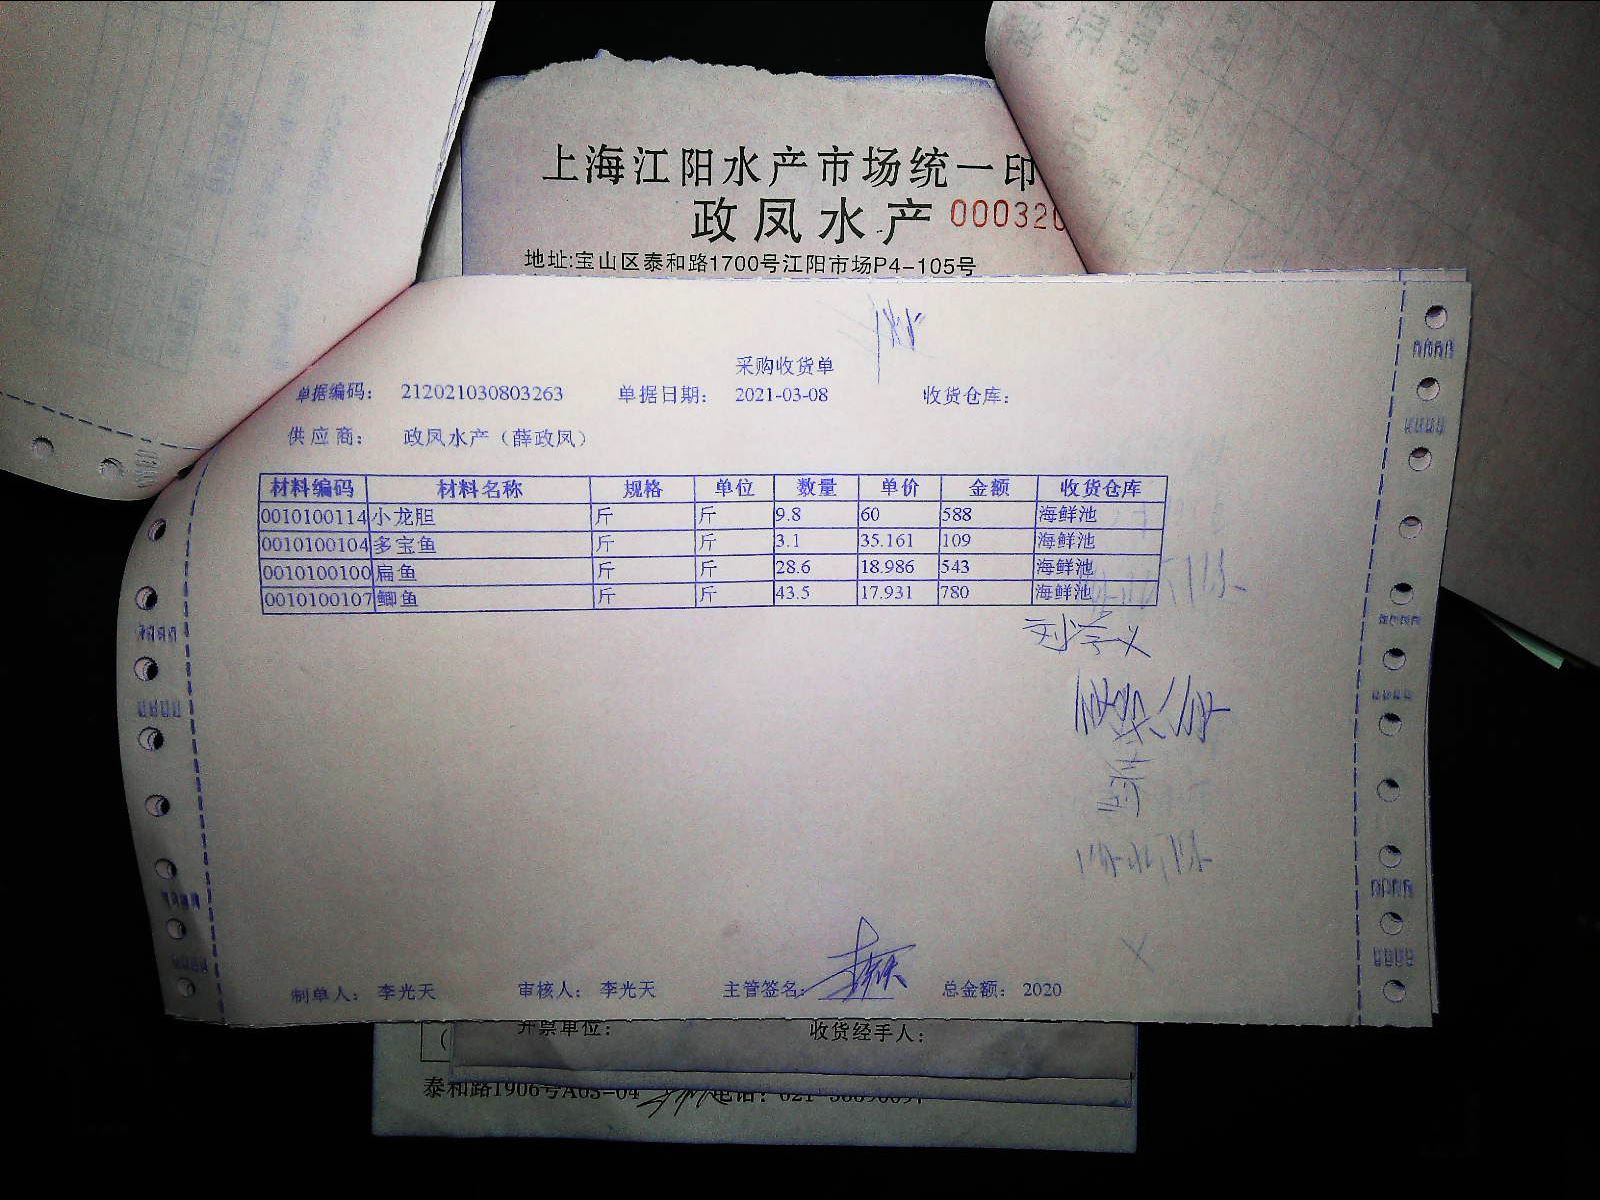 上海江阳水产市场统一印
政凤水产 000320
地址:宝山区泰和路1700号江阳市场P4-105号
采购收货单
单据编码: 212021030803263 单据日期: 2021-03-08 收货仓库:
供应商: 政凤水产（薛政凤）
材料编码 材料名称 规格 单位 数量 单价 金额 收货仓库
0010100114 小龙胆 斤 斤 9.8 60 588 海鲜池
0010100104 多宝鱼 斤 斤 3.1 35.161 109 海鲜池
0010100100 扁鱼 斤 斤 28.6 18.986 543 海鲜池
0010100107 鲫鱼 斤 斤 43.5 17.931 780 海鲜池
制单人: 李光天 审核人: 李光天 主管签名: 总金额: 2020
开票单位: 收货经手人:
泰和路1906号A63-04 电话: 021